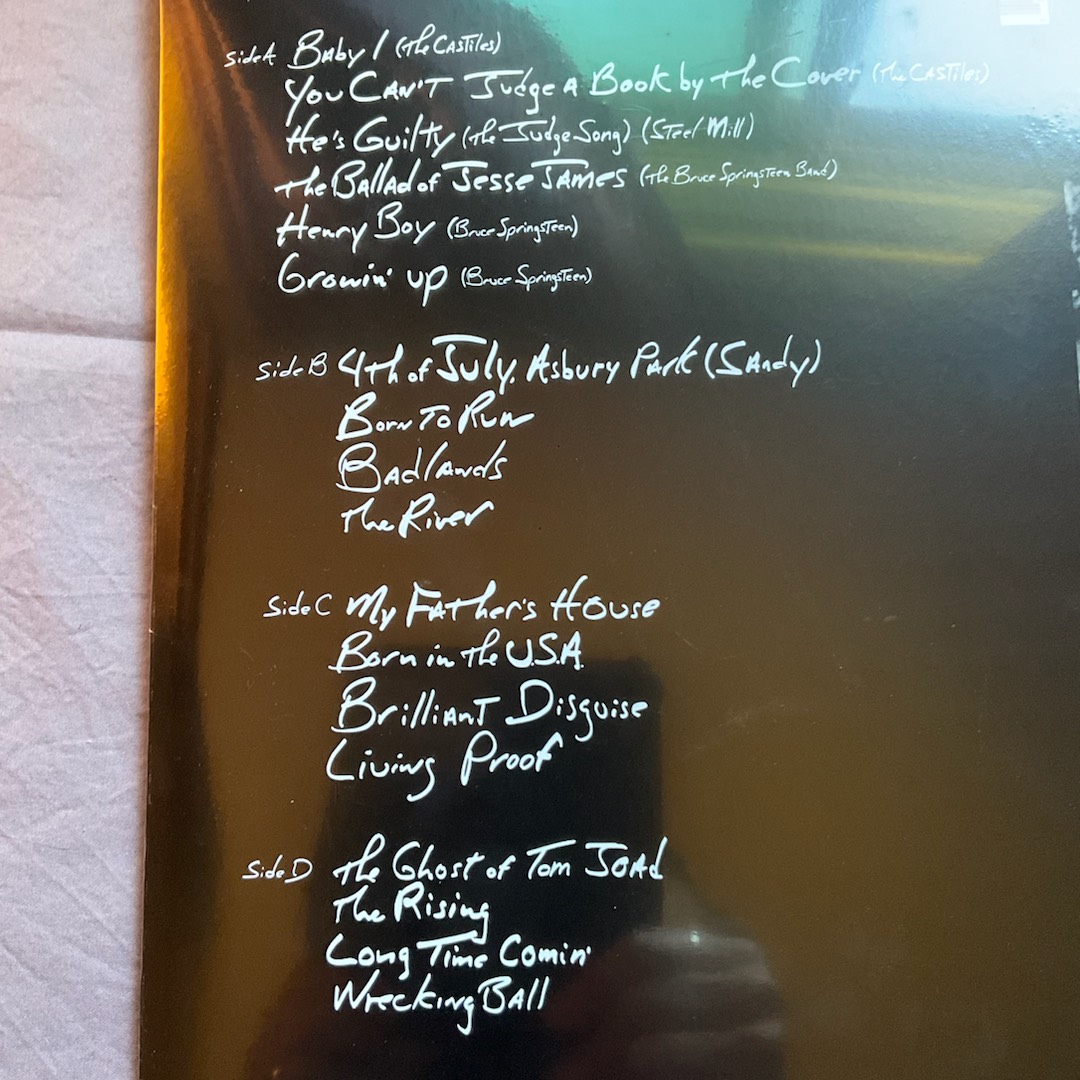 Side A Baby I (The Castiles)
You Can't Judge A Book by the Cover (The Castiles)
He's Guilty (The Judge Song) (Steel Mill)
The Ballad of Jesse James (The Bruce Springsteen Band)
Henry Boy (Bruce Springsteen)
Growin' up (Bruce Springsteen)
Side B 4th of July, Asbury Park (Sandy)
Born To Run
Badlands
The River
Side C My Father's House
Born in the U.S.A.
Brilliant Disguise
Living Proof
Side D The Ghost of Tom Joad
The Rising
Long Time Comin'
Wrecking Ball